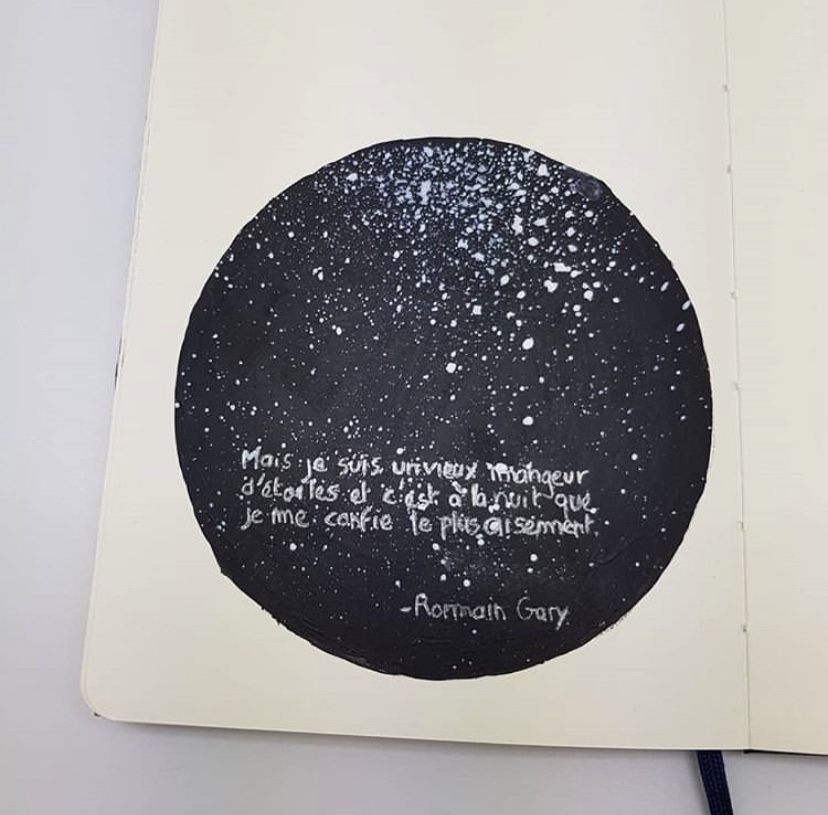 Mais je suis un vieux mangeur
d'étoiles et c'est à la nuit que
je me confie le plus aisément.
-Romain Gary